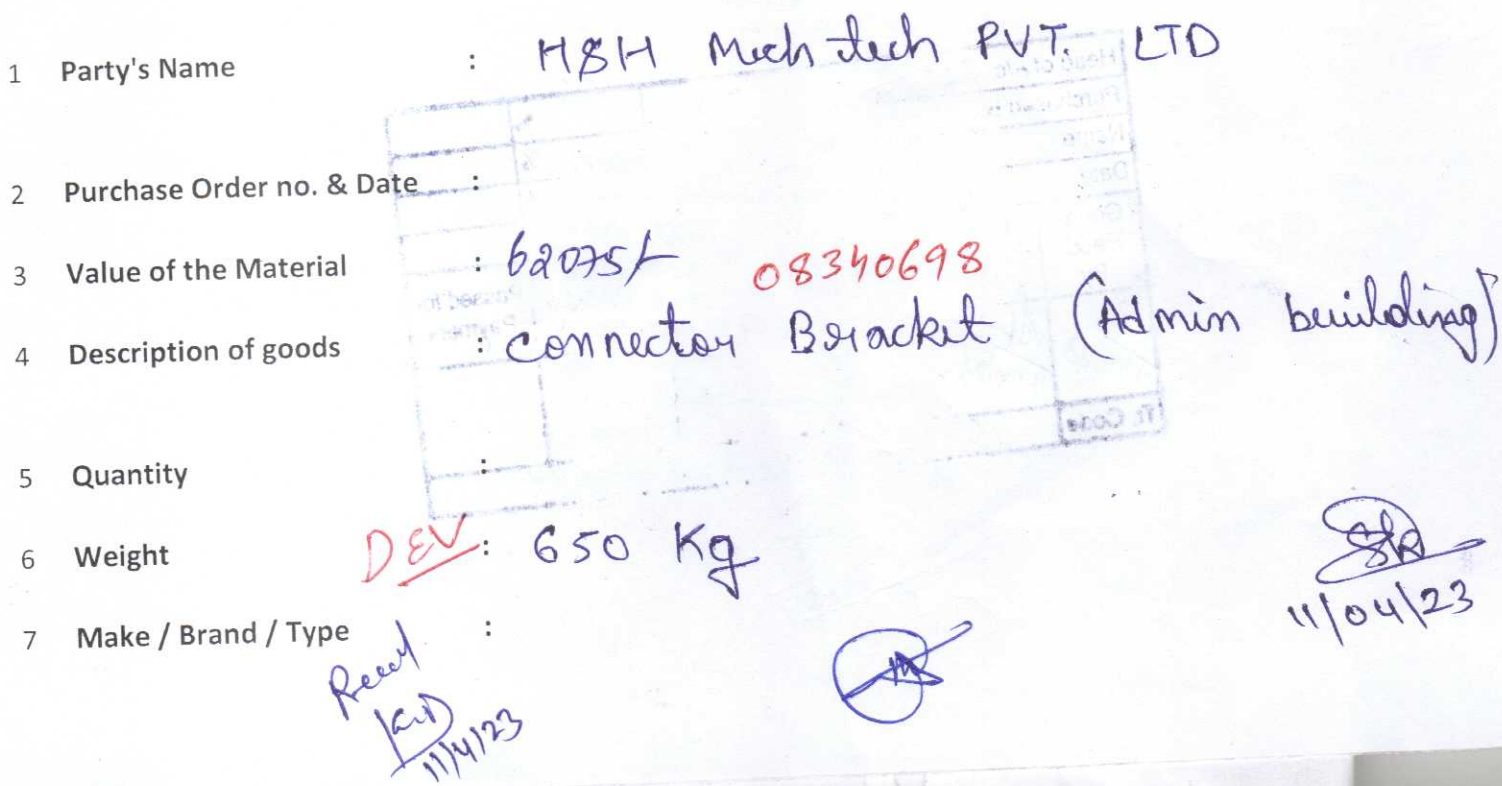 1 Party's Name : H&H Mech tech PVT. LTD
2 Purchase Order no. & Date :
3 Value of the Material : 62075/- 08340698
4 Description of goods : Connector Bracket (Admin building)
5 Quantity :
6 Weight DEV : 650 Kg
11/04/23
7 Make / Brand / Type :
Recd
11/4/23
Head of A/c
Name
Passed for
Payment
Tr. Code